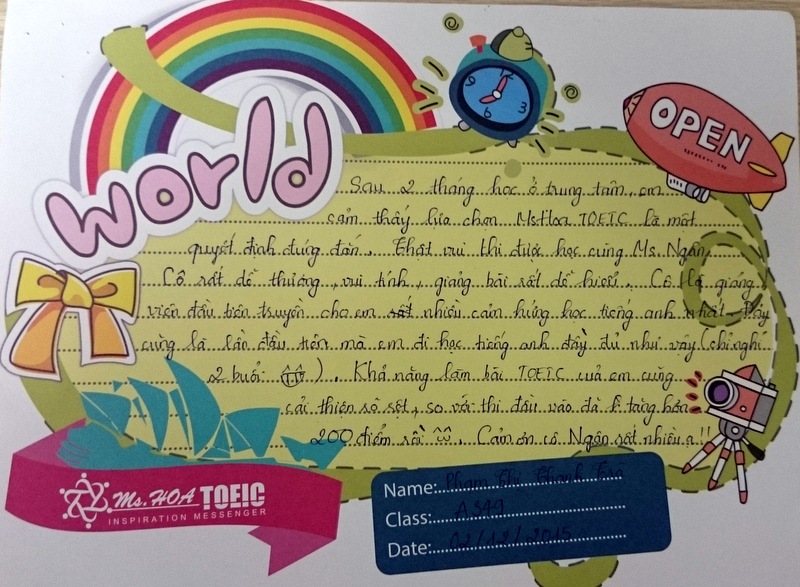 world
12
3
6
9
OPEN
Sau 2 tháng học ở trung tâm, em
cảm thấy lựa chọn Ms Hoa TOEIC là một
quyết định đúng đắn. Thật vui khi được học cùng Ms. Ngân,
Cô rất dễ thương, vui tính, giảng bài rất dễ hiểu. Cô là giảng
viên đầu tiên truyền cho em rất nhiều cảm hứng học tiếng anh nhất. Đây
cũng là lần đầu tiên mà em đi học tiếng anh đầy đủ như vậy (chỉ nghỉ
2 buổi). Khả năng làm bài TOEIC của em cũng
cải thiện rõ rệt, so với thi đầu vào đã tăng hơn
200 điểm rồi. Cảm ơn cô Ngân rất nhiều ạ!!
Ms. HOA TOEIC
INSPIRATION MESSENGER
Name: Phạm Thị Thanh Trà
Class: A349
Date: 12/12/2015